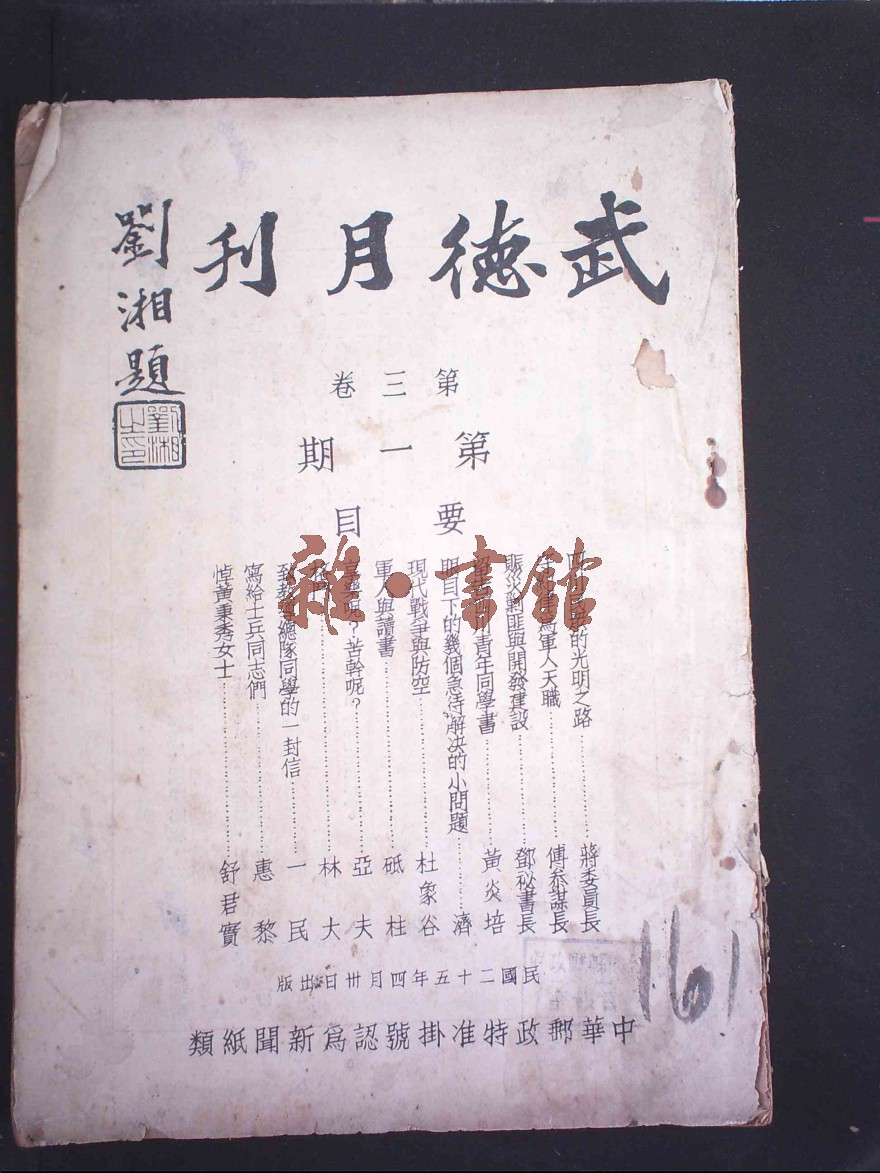 武德月刊
劉湘題
劉湘之印
第三卷
第一期
要目
四川民族的光明之路 蔣委員長
為軍人天職 傅參謀長
賑災剿匪與開發建設 鄧秘書長
青年同學書 黃炎培
眼目下的幾個急待解決的小問題 濟
現代戰爭與防空 杜象谷
軍人與讀書 砥柱
享樂呢?苦幹呢? 亞夫
林大
致教導總隊同學的一封信 一民
寫給士兵同志們 惠黎
悼黃秉秀女士 舒君實
民國二十五年四月卅日出版
中華郵政特准掛號認為新聞紙類
161
雜·書館